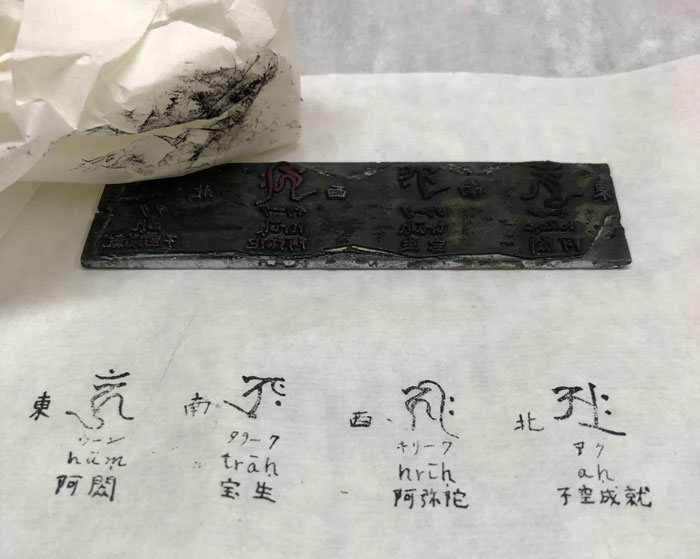 東 𑖮𑖳𑖽
ウーン
hūṃ
阿閦
南 𑖝𑖿𑖨𑖯𑖾
タラーク
trāḥ
宝生
西 𑖮𑖿𑖨𑖱𑖾
キリーク
hrīḥ
阿弥陀
北 𑖀𑖾
アク
aḥ
不空成就